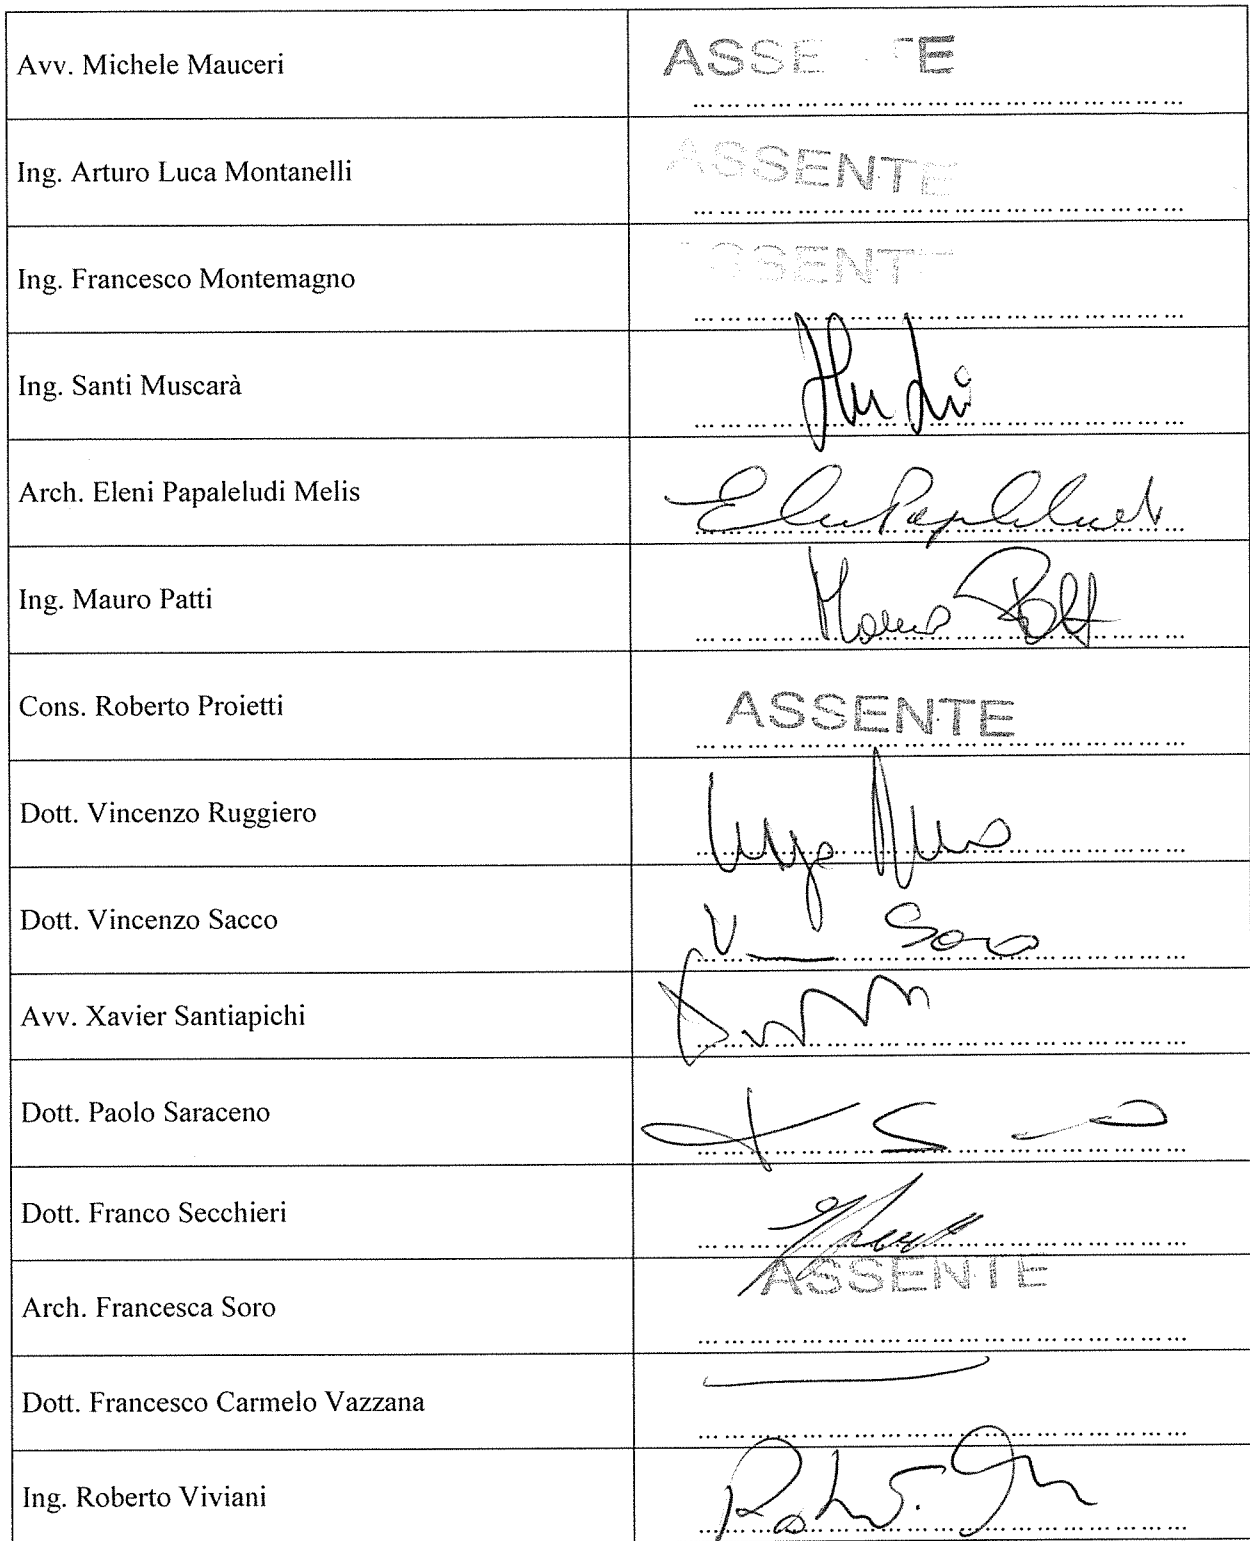 Avv. Michele Mauceri
ASSE TE
Ing. Arturo Luca Montanelli
ASSENTE
Ing. Francesco Montemagno
SSENT
Ing. Santi Muscarà
Arch. Eleni Papaleludi Melis
Ing. Mauro Patti
Cons. Roberto Proietti
ASSENTE
Dott. Vincenzo Ruggiero
Dott. Vincenzo Sacco
Avv. Xavier Santiapichi
Dott. Paolo Saraceno
Dott. Franco Secchieri
Arch. Francesca Soro
ASSENTE
Dott. Francesco Carmelo Vazzana
Ing. Roberto Viviani